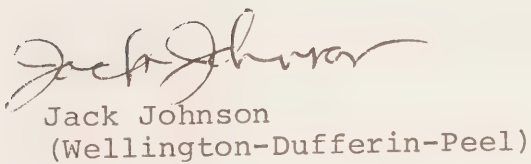 Jack Johnson
Jack Johnson
(Wellington-Dufferin-Peel)